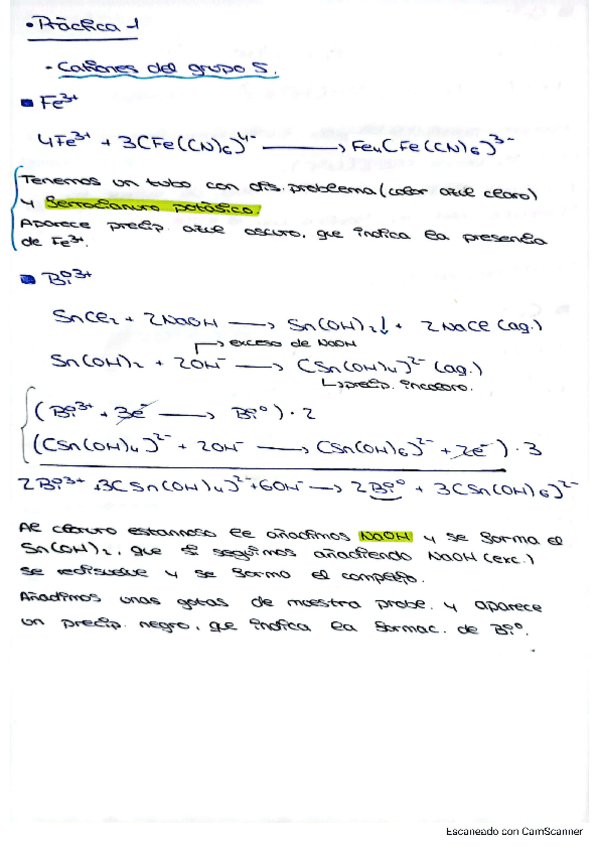 • Práctica 1
- Cationes del grupo 5.
Fe³⁺
4Fe³⁺ + 3[Fe(CN)₆]⁴⁻ ⟶ Fe₄[Fe(CN)₆]³⁻
Tenemos un tubo con dis. problema (color azul claro)
y ferrocianuro potásico.
Aparece precip. azul oscuro, que indica la presencia
de Fe³⁺.
Bi³⁺
SnCl₂ + 2NaOH ⟶ Sn(OH)₂↓ + 2NaCl (aq.)
↱ exceso de NaOH
Sn(OH)₂ + 2OH⁻ ⟶ [Sn(OH)₄]²⁻ (aq.)
↳ precip. incoloro.
(Bi³⁺ + 3e⁻ ⟶ Bi⁰) · 2
([Sn(OH)₄]²⁻ + 2OH⁻ ⟶ [Sn(OH)₆]²⁻ + 2e⁻) · 3
2Bi³⁺ + 3[Sn(OH)₄]²⁻ + 6OH⁻ ⟶ 2Bi⁰ + 3[Sn(OH)₆]²⁻
Al cloruro estannoso le añadimos NaOH y se forma el
Sn(OH)₂, que si seguimos añadiendo NaOH (exc.)
se redisuelve y se forma el complejo.
Añadimos unas gotas de muestra probl. y aparece
un precip. negro, que indica la formac. de Bi⁰.
Escaneado con CamScanner